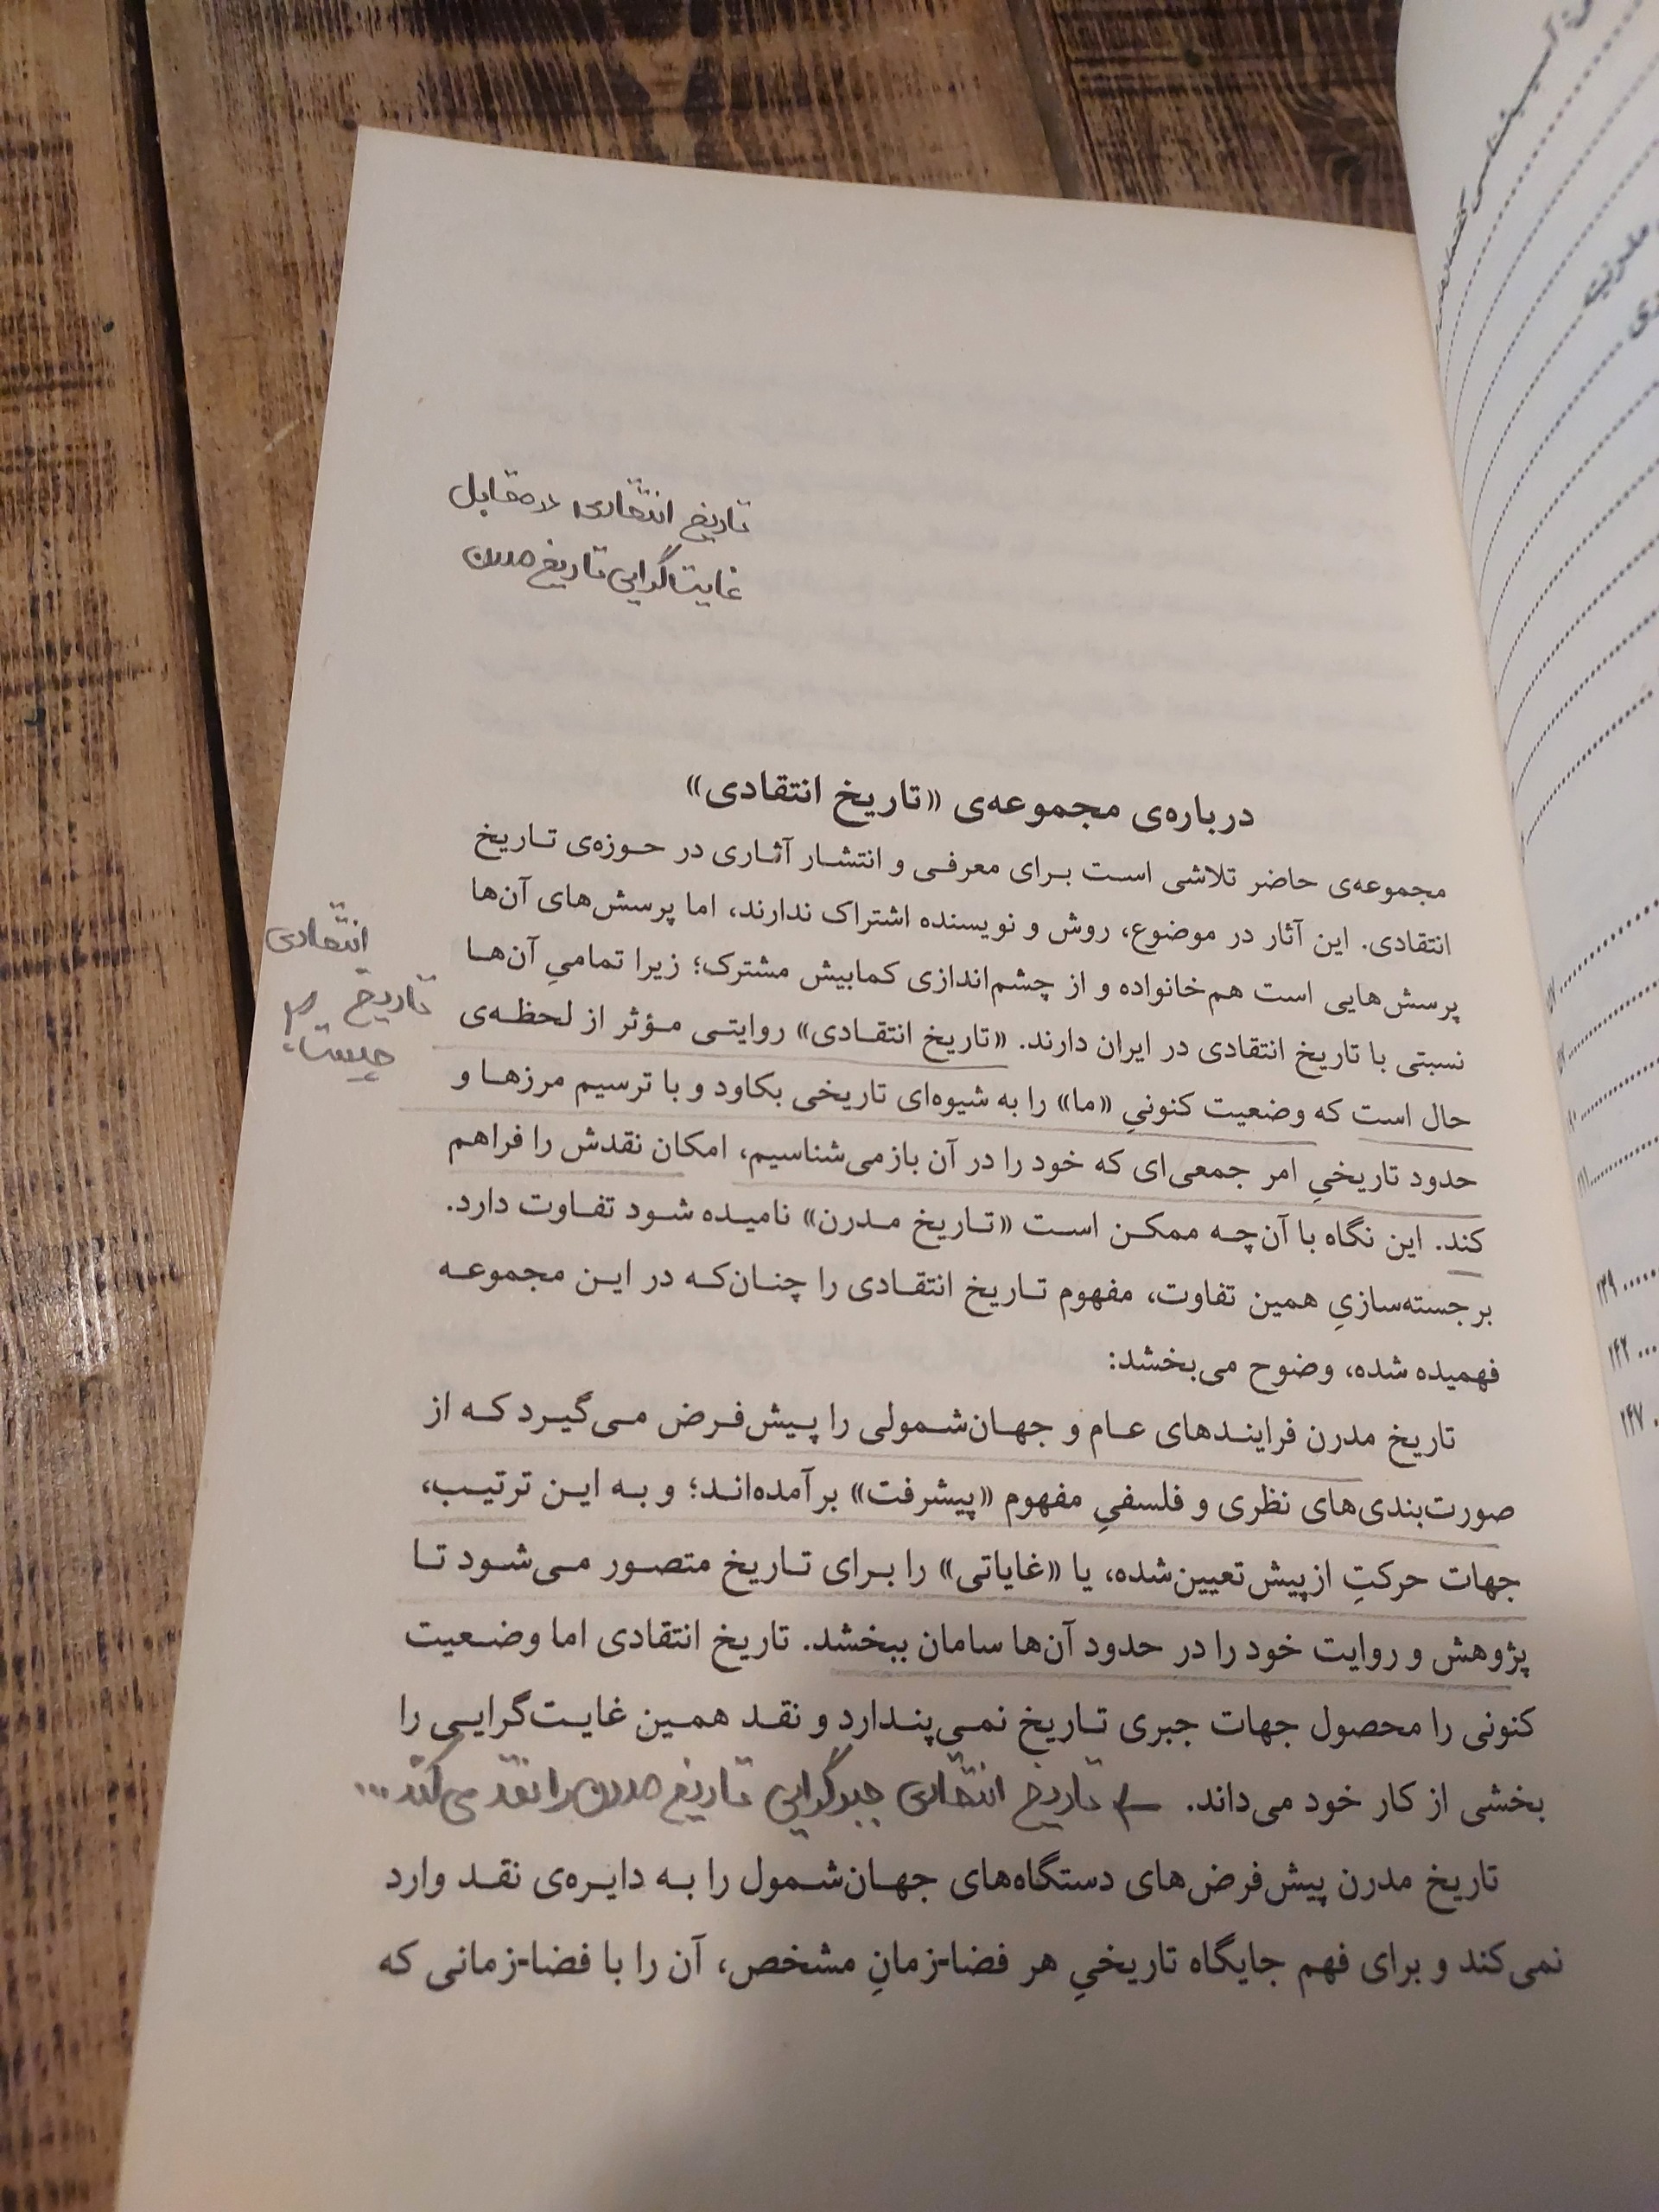 تاریخ انتقادی در مقابل
غایت‌گرایی تاریخ مدرن
درباره‌ی مجموعه‌ی «تاریخ انتقادی»
مجموعه‌ی حاضر تلاشی است برای معرفی و انتشار آثاری در حوزه‌ی تاریخ
انتقادی. این آثار در موضوع، روش و نویسنده اشتراک ندارند، اما پرسش‌های آن‌ها
پرسش‌هایی است هم‌خانواده و از چشم‌اندازی کمابیش مشترک؛ زیرا تمامیِ آن‌ها
نسبتی با تاریخ انتقادی در ایران دارند. «تاریخ انتقادی» روایتی مؤثر از لحظه‌ی
حال است که وضعیت کنونیِ «ما» را به شیوه‌ای تاریخی بکاود و با ترسیم مرزها و
حدود تاریخیِ امر جمعی‌ای که خود را در آن بازمی‌شناسیم، امکان نقدش را فراهم
کند. این نگاه با آن‌چه ممکن است «تاریخ مدرن» نامیده شود تفاوت دارد.
برجسته‌سازیِ همین تفاوت، مفهوم تاریخ انتقادی را چنان‌که در این مجموعه
فهمیده شده، وضوح می‌بخشد:
تاریخ مدرن فرایندهای عام و جهان‌شمولی را پیش‌فرض می‌گیرد که از
صورت‌بندی‌های نظری و فلسفیِ مفهوم «پیشرفت» برآمده‌اند؛ و به این ترتیب،
جهات حرکتِ ازپیش‌تعیین‌شده، یا «غایاتی» را برای تاریخ متصور می‌شود تا
پژوهش و روایت خود را در حدود آن‌ها سامان ببخشد. تاریخ انتقادی اما وضعیت
کنونی را محصول جهات جبری تاریخ نمی‌پندارد و نقد همین غایت‌گرایی را
بخشی از کار خود می‌داند. ← تاریخ انتقادی جبرگرایی تاریخ مدرن را نقد می‌کند...
تاریخ مدرن پیش‌فرض‌های دستگاه‌های جهان‌شمول را به دایره‌ی نقد وارد
نمی‌کند و برای فهم جایگاه تاریخیِ هر فضا-زمانِ مشخص، آن را با فضا-زمانی که
انتقادی
تاریخ
چیست؟
۱۳۹
۱۴۲
۱۴۷